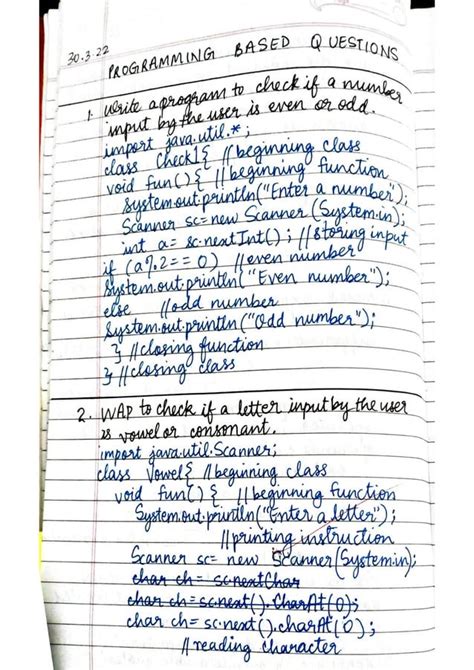 30.3.22
PROGRAMMING BASED QUESTIONS
1. Write a program to check if a number
input by the user is even or odd.
import java.util.*;
class Check1{ //beginning class
void fun(){ //beginning function
System.out.println("Enter a number");
Scanner sc=new Scanner (System.in);
int a= sc.nextInt(); //storing input
if (a%2==0) //even number
System.out.println("Even number");
else //odd number
System.out.println("Odd number");
} //closing function
} //closing class
2. WAP to check if a letter input by the user
is vowel or consonant.
import java.util.Scanner;
class Vowel{ //beginning class
void fun() { //beginning function
System.out.println("Enter a letter");
//printing instruction
Scanner sc= new Scanner(System.in);
char ch= sc.nextChar
char ch= sc.next().CharAt(0);
char ch= sc.next().charAt(0);
//reading character